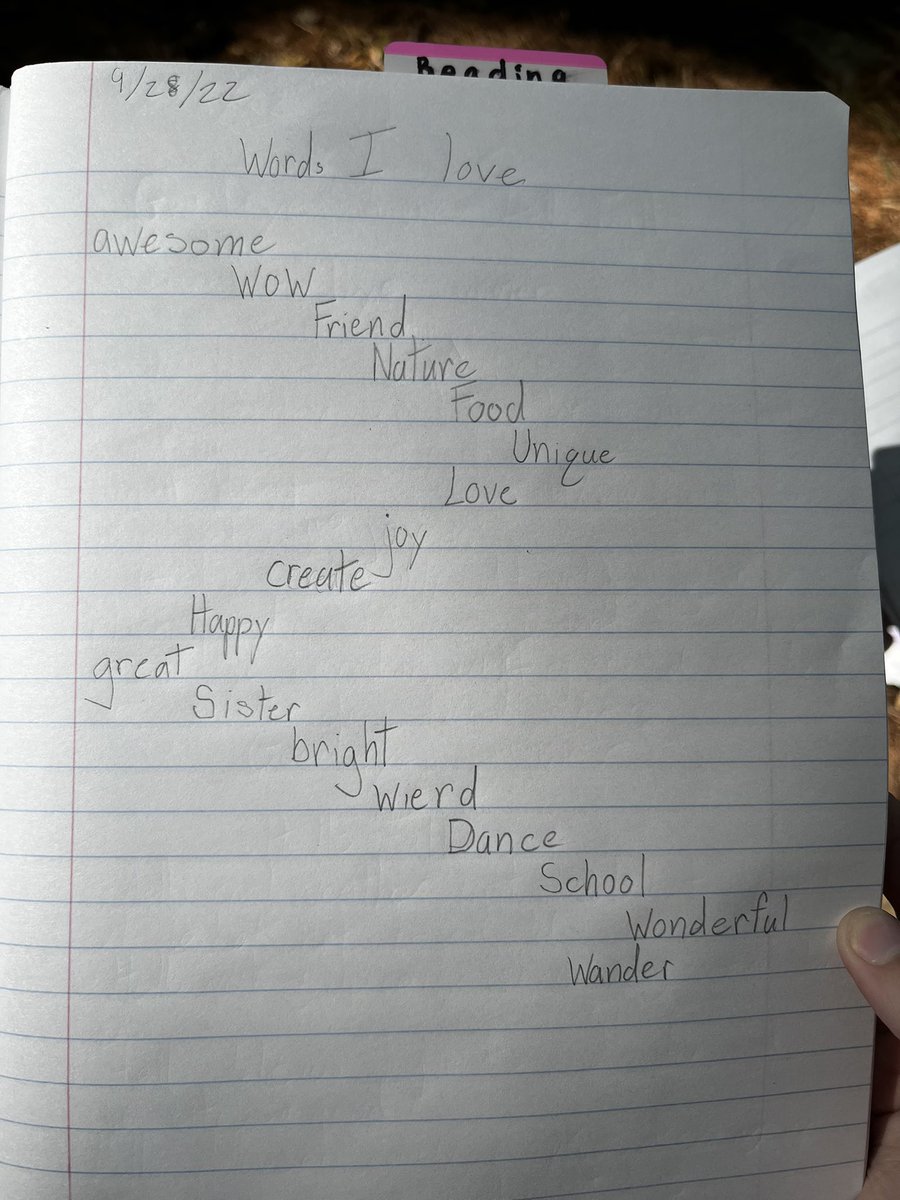 Reading
9/28/22
Words I love
awesome
WOW
Friend
Nature
Food
Unique
Love
joy
create
Happy
great
Sister
bright
Wierd
Dance
School
Wonderful
Wander